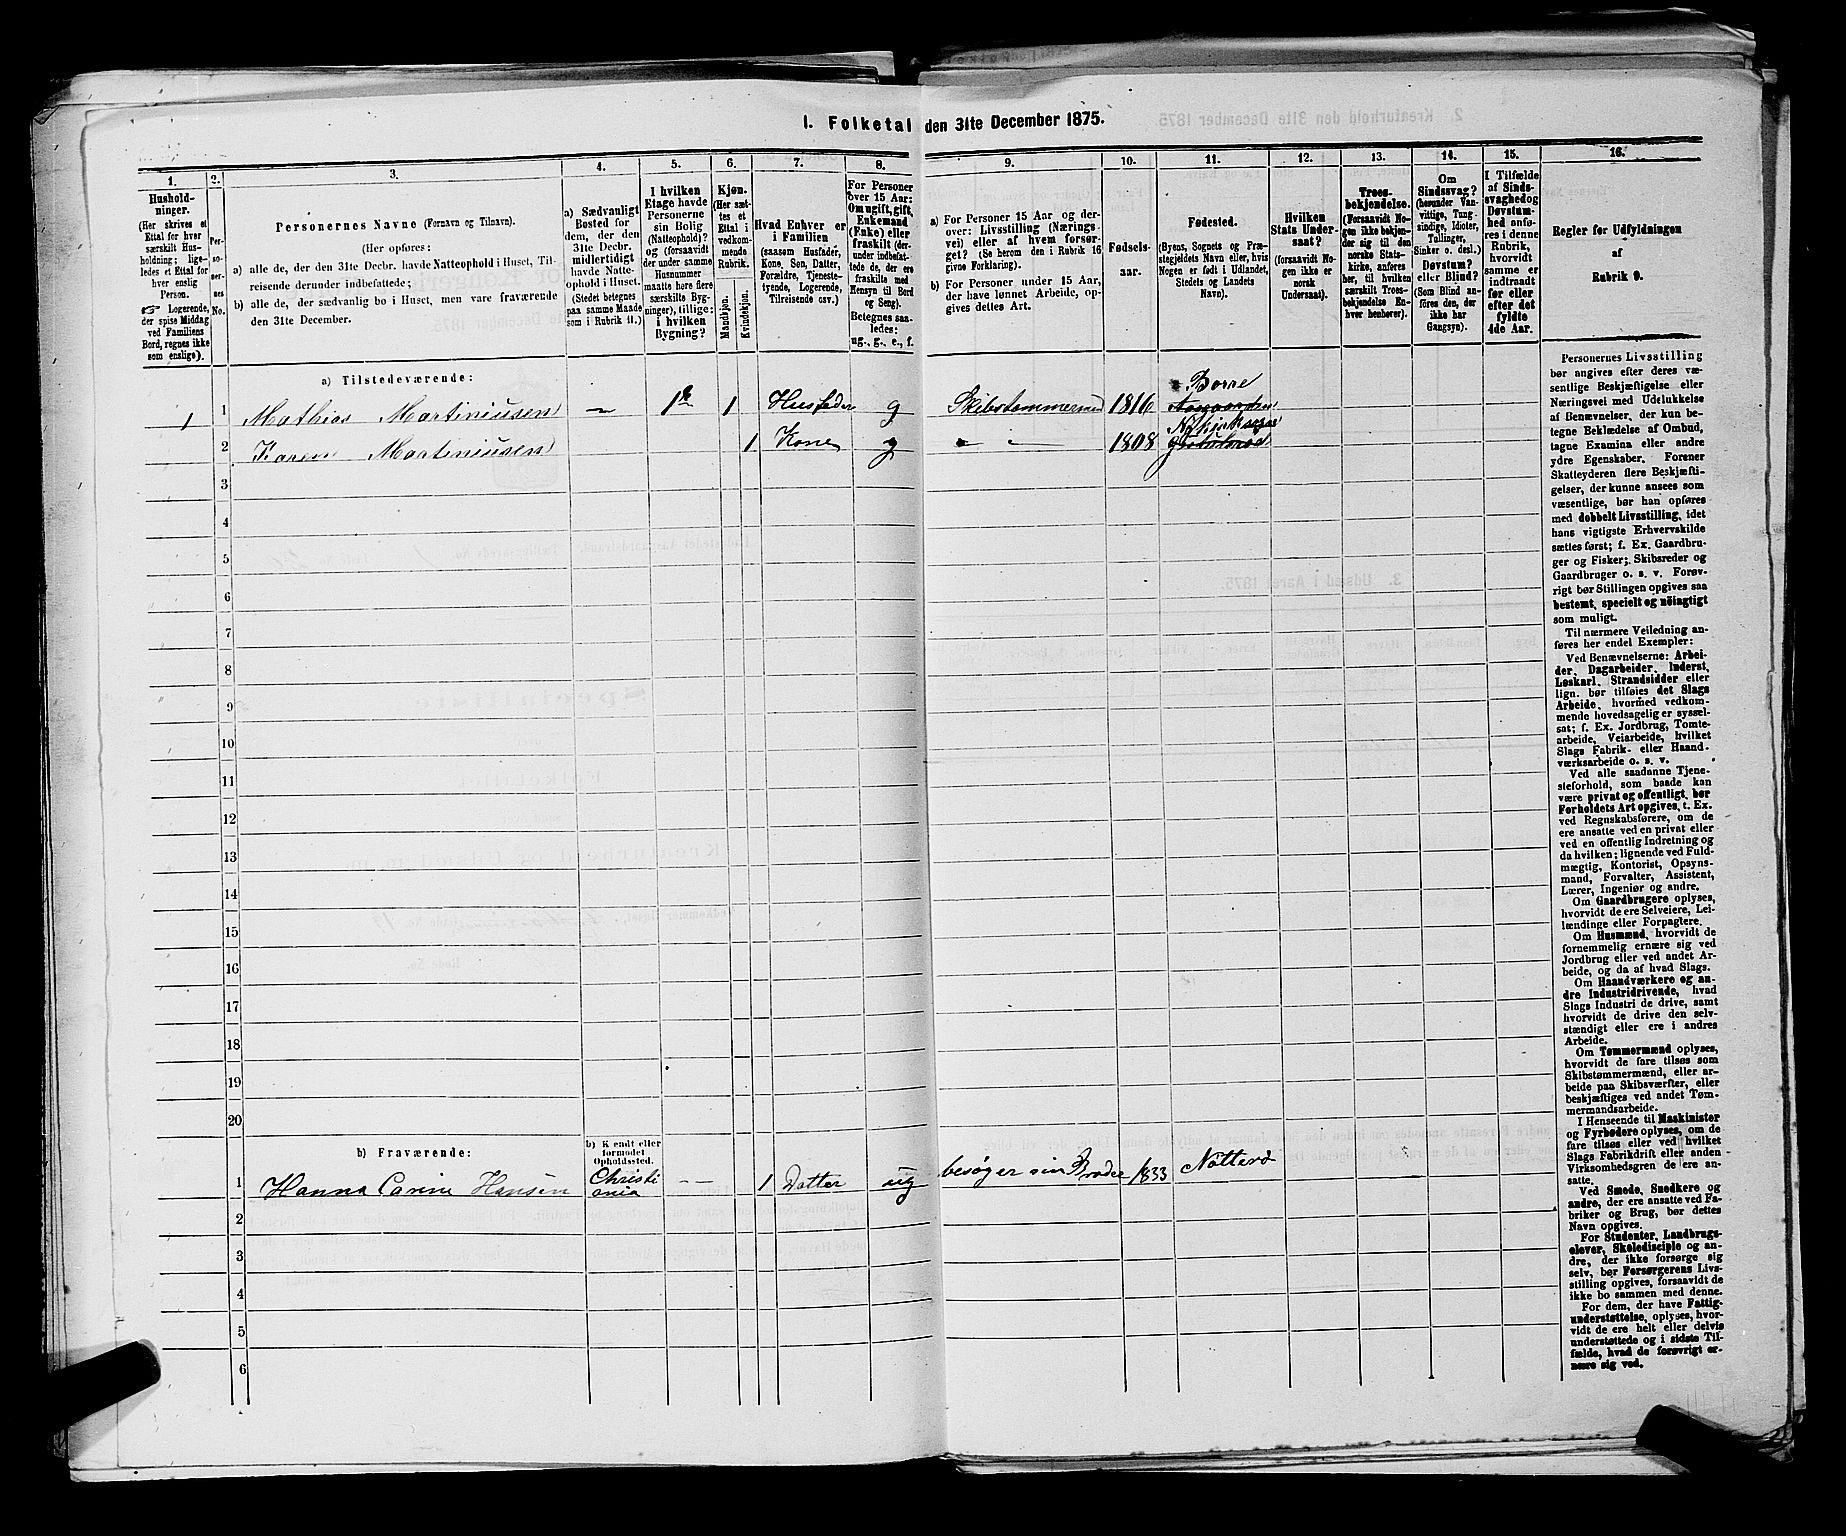 I. Folketal den 31te December 1875.
1. 2. 3. 4. 5. 6. 7. 8. 9. 10. 11. 12. 13. 14. 15. 16.
Hushold-
ninger.
(Her skrives et
Ettal for hver
særskilt Hus-
holdning; lige-
ledes et Ettal for
hver enslig
Person.
☞ Logerende,
der spise Middag
ved Familiens
Bord, regnes ikke
som enslige).
Per-
so-
ner-
nes
No.
Personernes Navne (Fornavn og Tilnavn).
(Her opføres:
a) alle de, der den 31te Decbr. havde Natteophold i Huset, Til-
reisende derunder indbefattede;
b) alle de, der sædvanlig bo i Huset, men vare fraværende
den 31te December.
a) Sædvanligt
Bosted for
dem, der den
31te Decbr.
midlertidigt
havde Natte-
ophold i Huset.
(Stedet betegnes
paa samme Maade
som i Rubrik 11.)
I hvilken
Etage havde
Personerne
sin Bolig
(Natteophold)?
og (forsaavidt
der under samme
Husnummer
maatte høre flere
særskilte Byg-
ninger), tillige:
i hvilken
Bygning?
Kjøn.
(Her sæt-
tes et
Ettal i
vedkom-
mende
Rubrik.
Mandkjøn.
Kvindekjøn.
Hvad Enhver er
i Familien
(saasom Husfader,
Kone, Søn, Datter,
Forældre, Tjeneste-
tyende, Logerende,
Tilreisende osv.)
For Personer
over 15 Aar:
Om ugift, gift,
Enkemand
(Enke) eller
fraskilt (der-
under indbefat-
tede de, der ere
fraskilte med
Hensyn til Bord
og Seng).
Betegnes saa-
ledes:
ug., g., e., f.
a) For Personer 15 Aar og der-
over: Livsstilling (Nærings-
vei) eller af hvem forsør-
get? (Se herom den i Rubrik 16
givne Forklaring).
b) For Personer under 15 Aar,
der have lønnet Arbeide, op-
gives dettes Art.
Fødsels-
aar.
Fødested.
(Byens, Sognets og Præ-
stegjeldets Navn eller, hvis
Nogen er født i Udlandet,
Stedets og Landets
Navn).
Hvilken
Stats Under-
saat?
(forsaavidt No-
gen ikke er
norsk
Undersaat).
Troes-
bekjendelse.
(Forsaavidt No-
gen ikke bekjen-
der sig til den
norske Stats-
kirke, anføres
her, til hvilken
særskilt Troes-
bekjendelse En-
hver henhører).
Om
Sindssvag?
(herunder Van-
vittige, Tung-
sindige, Idioter,
Tullinger,
Sinker o. desl.)
Døvstum?
eller Blind?
(Som Blind an-
føres den, der
ikke har
Gangsyn).
I Tilfælde
af Sinds-
svaghed og
Døvstum-
hed anfø-
res i denne
Rubrik,
hvorvidt
samme er
indtraadt
før eller
efter det
fyldte
4de Aar.
Regler for Udfyldningen
af
Rubrik 9.
a) Tilstedeværende:
1 1 Mathias Martiniusen — 1 1 Husfader g Skibstømmermd 1816 Borre
2 Karen Martiniusen 1 Kone g 1808
3
4
5
6
7
8
9
10
11
12
13
14
15
16
17
18
19
20
b) Fraværende:
b) Kjendt eller
formodet
Opholdssted.
1 Hanna Carine Hansen Christiania — 1 Datter ug besøger sin Broder 1833 Nøtterø
2
3
4
5
6
Personernes Livsstilling
bør angives efter deres væ-
sentlige Beskjæftigelse eller
Næringsvei med Udelukkelse
af Benævnelser, der kun be-
tegne Beklædelse af Ombud,
tagne Examina eller andre
ydre Egenskaber. Forener
Skatteyderen flere Beskjæfti-
gelser, der kunne ansees som
væsentlige, bør han opføres
med dobbelt Livsstilling, idet
hans vigtigste Erhvervskilde
sættes først; f. Ex. Gaardbru-
ger og Fisker; Skibsreder og
Gaardbruger o. s. v. Forøv-
rigt bør Stillingen opgives saa
bestemt, specielt og nøiagtigt
som muligt.
Til nærmere Veiledning an-
føres her endel Exempler:
Ved Benævnelserne: Arbei-
der, Dagarbeider, Inderst,
Løskarl, Strandsidder eller
lign. bør tilføies det Slags
Arbeide, hvormed vedkom-
mende hovedsagelig er syssel-
sat; f. Ex. Jordbrug, Tomte-
arbeide, Veiarbeide, hvilket
Slags Fabrik- eller Haand-
værksarbeide o. s. v.
Ved alle saadanne Tjene-
steforhold, som baade kan
være privat og offentligt, bør
Forholdets Art opgives, t. Ex.
ved Regnskabsførere, om de
ere ansatte ved en privat eller
ved en offentlig Indretning og
da hvilken; lignende ved Fuld-
mægtig, Kontorist, Opsyns-
mand, Forvalter, Assistent,
Lærer, Ingeniør og andre.
Om Gaardbrugere oplyses,
hvorvidt de ere Selveiere, Lei-
lændinge eller Forpagtere.
Om Husmænd, hvorvidt de
fornemmelig ernære sig ved
Jordbrug eller ved andet Ar-
beide, og da af hvad Slags.
Om Haandværkere og an-
dre Industridrivende, hvad
Slags Industri de drive, samt
hvorvidt de drive den selv-
stændigt eller ere i andres
Arbeide.
Om Tømmermænd oplyses,
hvorvidt de fare tilsøs som
Skibstømmermænd, eller ar-
beide paa Skibsværfter, eller
beskjæftiges ved andet Tøm-
mermandsarbeide.
I Henseende til Maskinister
og Fyrbødere oplyses, om de
fare tilsøs eller ved hvilket
Slags Fabrikdrift eller anden
Virksomhedsgren de ere an-
satte.
Ved Smede, Snedkere og
andre, der ere ansatte ved Fa-
briker og Brug, bør dettes
Navn opgives.
For Studenter, Landbrugs-
elever, Skoledisciple og an-
dre, der ikke forsørge sig
selv, bør Forsørgerens Livs-
stilling opgives, forsaavidt de
ikke bo sammen med denne.
For dem, der have Fattig-
understøttelse, oplyses, hvor-
vidt de ere helt eller delvis
understøttede og i sidste Til-
fælde, hvad de forøvrigt er-
nære sig ved.